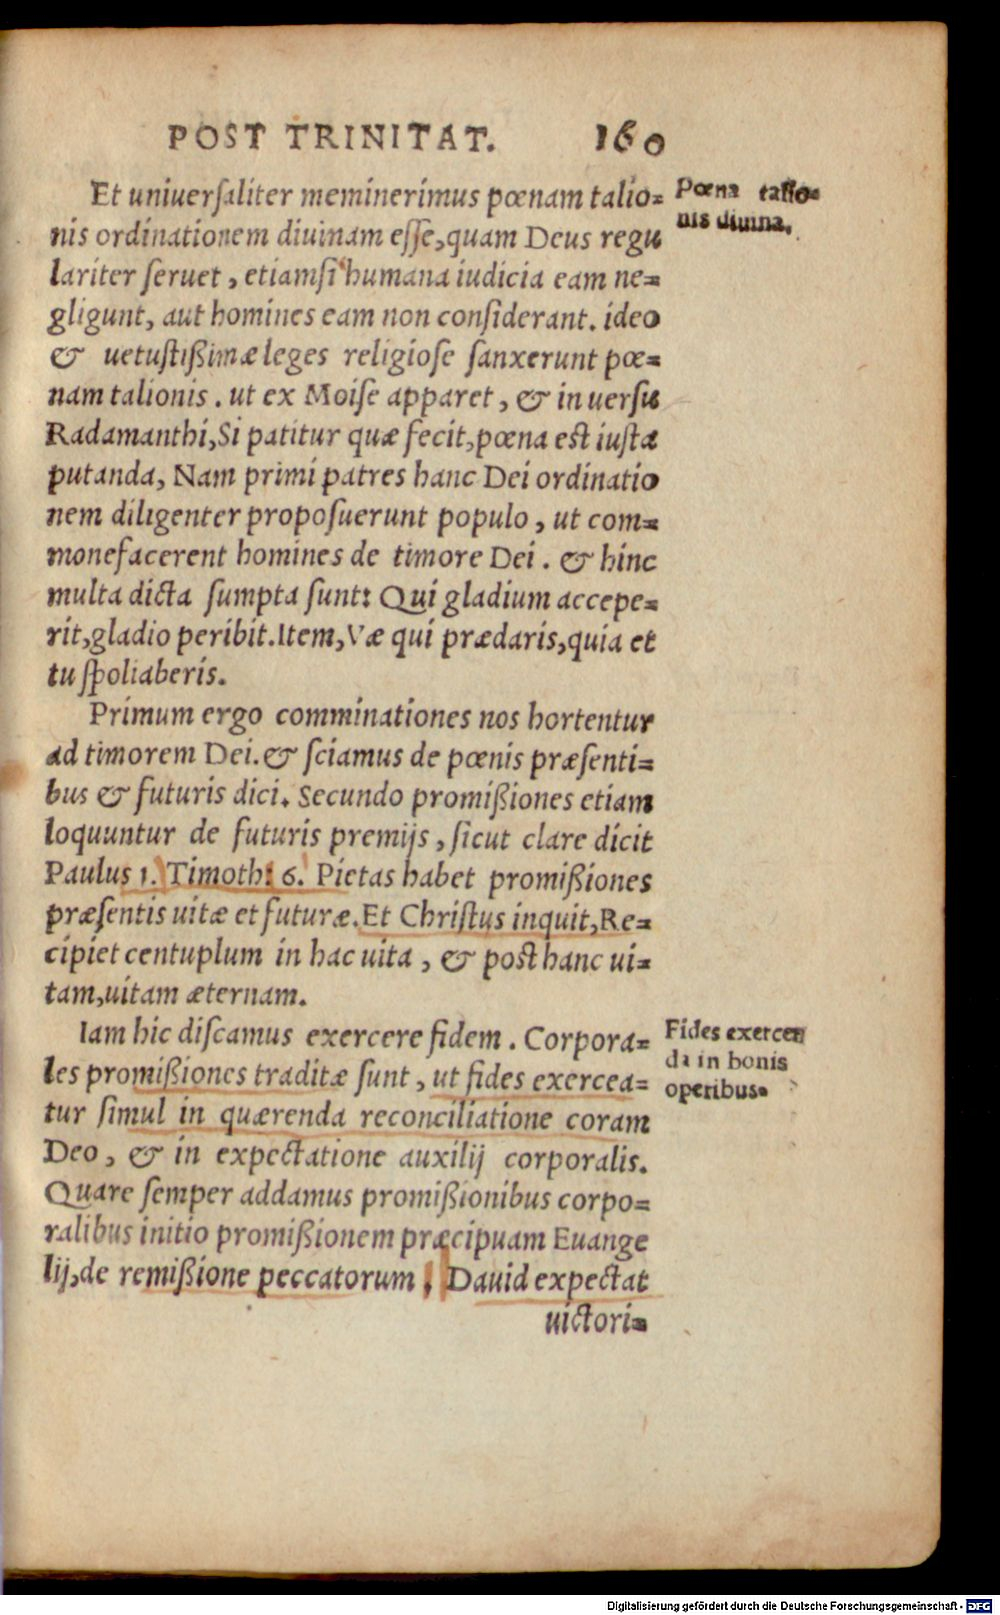 POST TRINITAT. 160
Et uniuersaliter meminerimus pœnam talio=
nis ordinationem diuinam esse, quam Deus regu
lariter seruet, etiamsi humana iudicia eam ne=
gligunt, aut homines eam non considerant. ideo
& uetustißimæ leges religiose sanxerunt pœ=
nam talionis. ut ex Moise apparet, & in uersu
Radamanthi, Si patitur quæ fecit, pœna est iusta
putanda, Nam primi patres hanc Dei ordinatio
nem diligenter proposuerunt populo, ut com=
monefacerent homines de timore Dei. & hinc
multa dicta sumpta sunt: Qui gladium accepe=
rit, gladio peribit. Item, Væ qui prædaris, quia et
tu spoliaberis.
Primum ergo comminationes nos hortentur
ad timorem Dei. & sciamus de pœnis præsenti=
bus & futuris dici. Secundo promißiones etiam
loquuntur de futuris premijs, sicut clare dicit
Paulus 1. Timoth: 6. Pietas habet promißiones
præsentis uitæ et futuræ. Et Christus inquit, Re=
cipiet centuplum in hac uita, & post hanc ui=
tam, uitam æternam.
Iam hic discamus exercere fidem. Corpora=
les promißiones traditæ sunt, ut fides exercea=
tur simul in quærenda reconciliatione coram
Deo, & in expectatione auxilij corporalis.
Quare semper addamus promißionibus corpo=
ralibus initio promißionem præcipuam Euange
lij, de remißione peccatorum. Dauid expectat
uictori=
Pœna talio=
nis diuina.
Fides exercen
da in bonis
operibus.
Digitalisierung gefördert durch die Deutsche Forschungsgemeinschaft - DFG